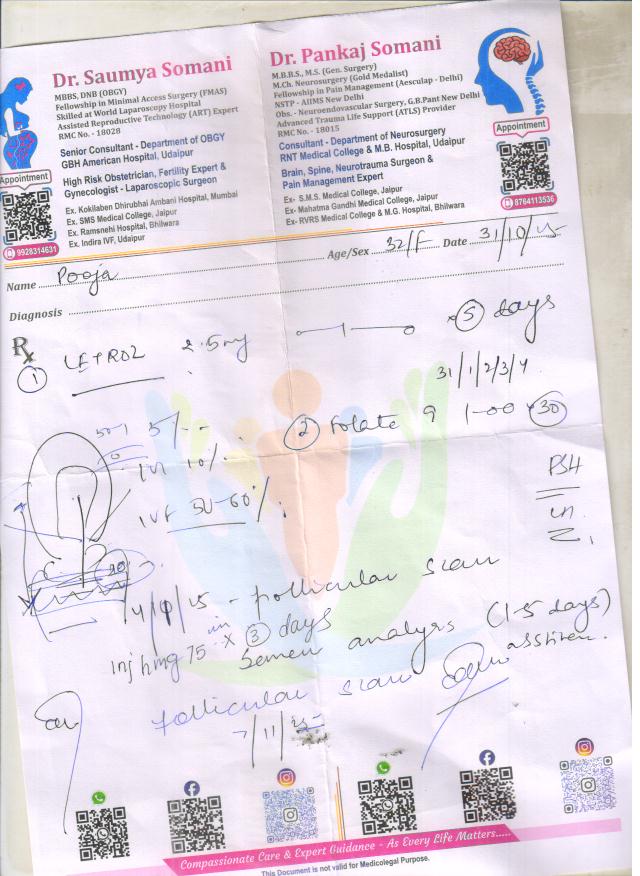 Dr. Saumya Somani
MBBS, DNB (OBGY)
Fellowship in Minimal Access Surgery (FMAS)
Skilled at World Laparoscopy Hospital
Assisted Reproductive Technology (ART) Expert
RMC No. - 18028
Senior Consultant - Department of OBGY
GBH American Hospital, Udaipur
High Risk Obstetrician, Fertility Expert &
Gynecologist - Laparoscopic Surgeon
Ex. Kokilaben Dhirubhai Ambani Hospital, Mumbai
Ex. SMS Medical College, Jaipur
Ex. Ramsnehi Hospital, Bhilwara
Ex. Indira IVF, Udaipur
Appointment
9928314631
Dr. Pankaj Somani
M.B.B.S., M.S. (Gen. Surgery)
M.Ch. Neurosurgery (Gold Medalist)
Fellowship in Pain Management (Aesculap - Delhi)
NSTP - AIIMS New Delhi
Obs. - Neuroendovascular Surgery, G.B.Pant New Delhi
Advanced Trauma Life Support (ATLS) Provider
RMC No. - 18015
Consultant - Department of Neurosurgery
RNT Medical College & M.B. Hospital, Udaipur
Brain, Spine, Neurotrauma Surgeon &
Pain Management Expert
Ex- S.M.S. Medical College, Jaipur
Ex- Mahatma Gandhi Medical College, Jaipur
Ex- RVRS Medical College & M.G. Hospital, Bhilwara
Appointment
8764113536
Name Pooja Age/Sex 32/F Date 31/10/25
Diagnosis
Rx
1 LETROZ 2.5mg x 5 days
31/1/2/3/4
5/..
2 Folate 9 1-00 x 30
IUI 10/..
IVF 50-60%
FSH
LH
follicular scan
inj hmg 75 x 3 days
Semen analysis (1-5 days)
follicular scan
7/11/25
Compassionate Care & Expert Guidance - As Every Life Matters.....
This Document is not valid for Medicolegal Purpose.